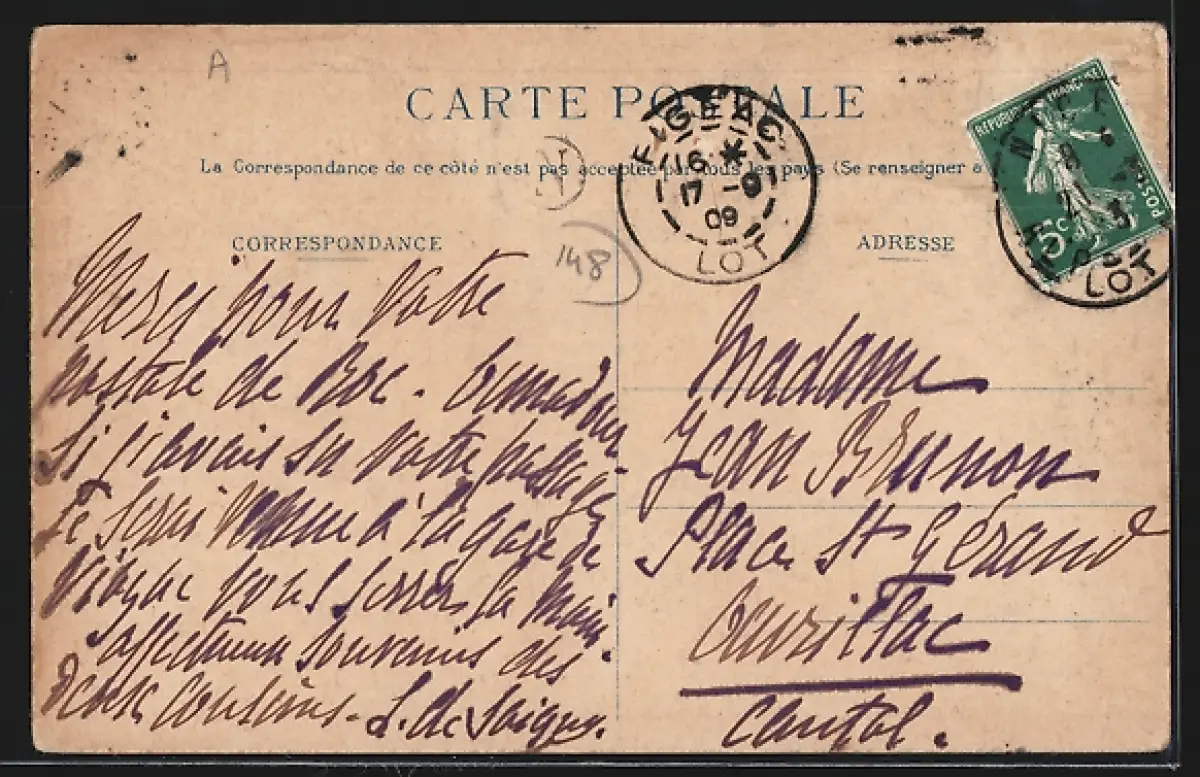 A
CARTE POSTALE
La Correspondance de ce côté n'est pas acceptée par tous les pays (Se renseigner a
CORRESPONDANCE
ADRESSE
148
FIGEAC
16 *
17 -9
09
LOT
RÉPUBLIQUE FRANÇAISE
POSTES
5c
LOT
Merci pour votre
postale de Roc-
Si j'avais su votre passage
Je serai venue à la gare de
vous serrer la main.
affectueux souvenirs des
deux cousins. L. de
Madame
Jean Brunon
Place St Géraud
Aurillac
Cantal.